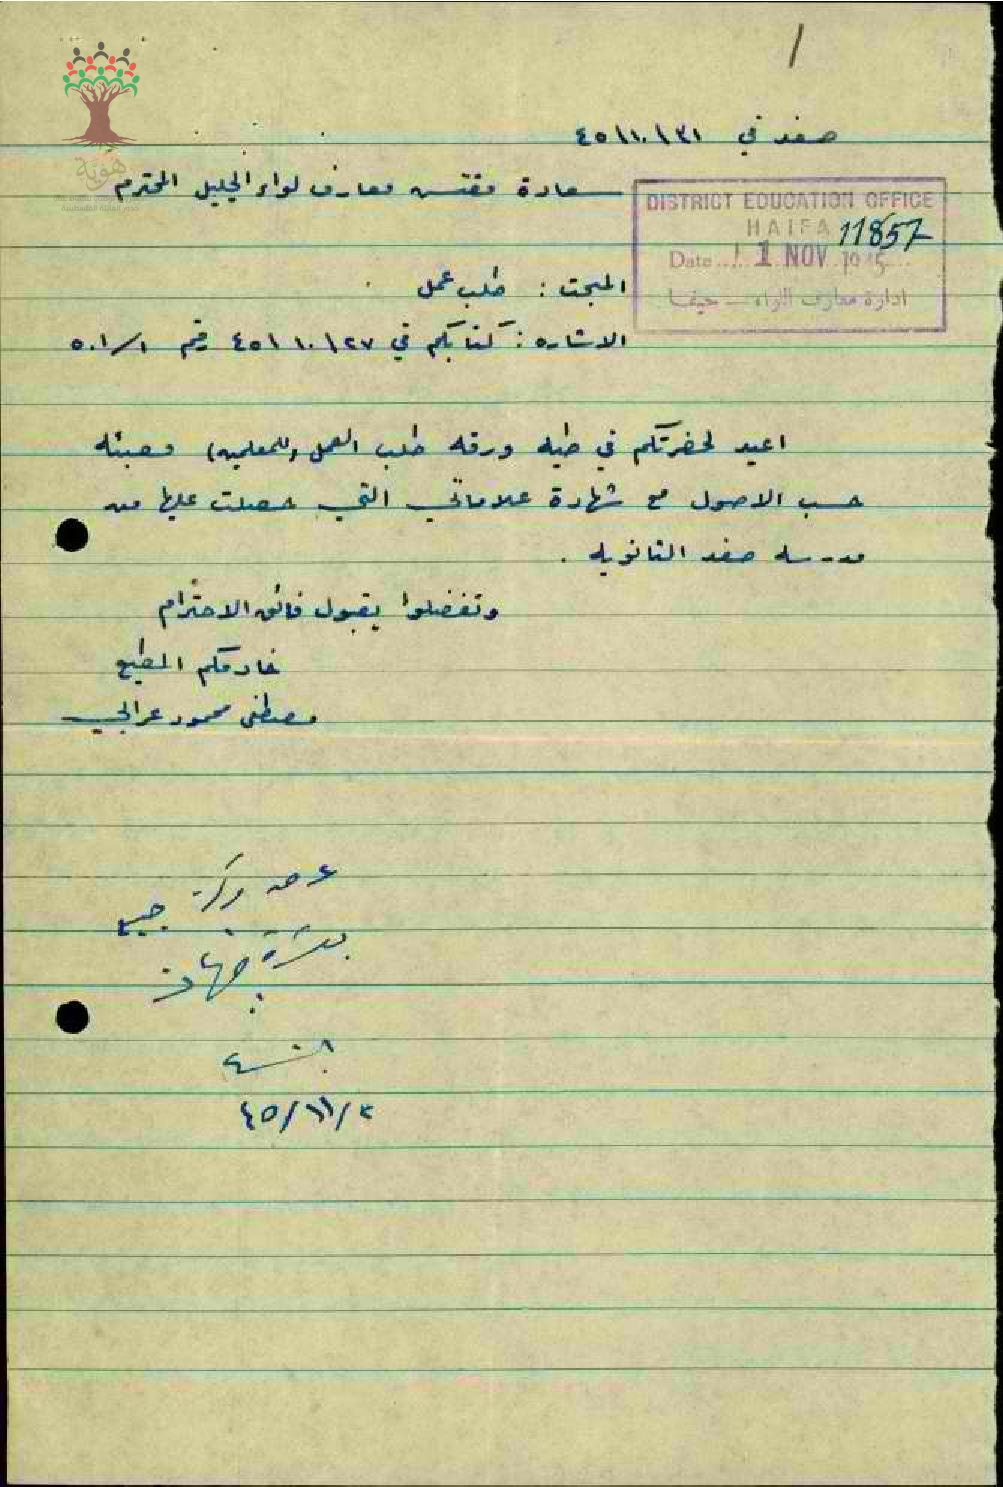 ١
صفد في ٣١\١٠\٤٥
سعادة مفتش معارف لواء الجليل المحترم
DISTRICT EDUCATION OFFICE
HAIFA
11857
Date 1 NOV 1945
ادارة معارف اللواء — حيفا
المبحث : طلب عمل
الاشاره : كتابكم في ٢٧\١٠\٤٥ رقم ١/٥٠١
اعيد لحضرتكم في طيه ورقه طلب العمل (للمعلمين) معبئه
حسب الاصول مع شهادة علاماتي التي حصلت عليها من
مدرسه صفد الثانويه .
وتفضلوا بقبول فائق الاحترام
خادمكم المطيع
مصطفى محمود عرابي
٤٥/١١/٢
هوية